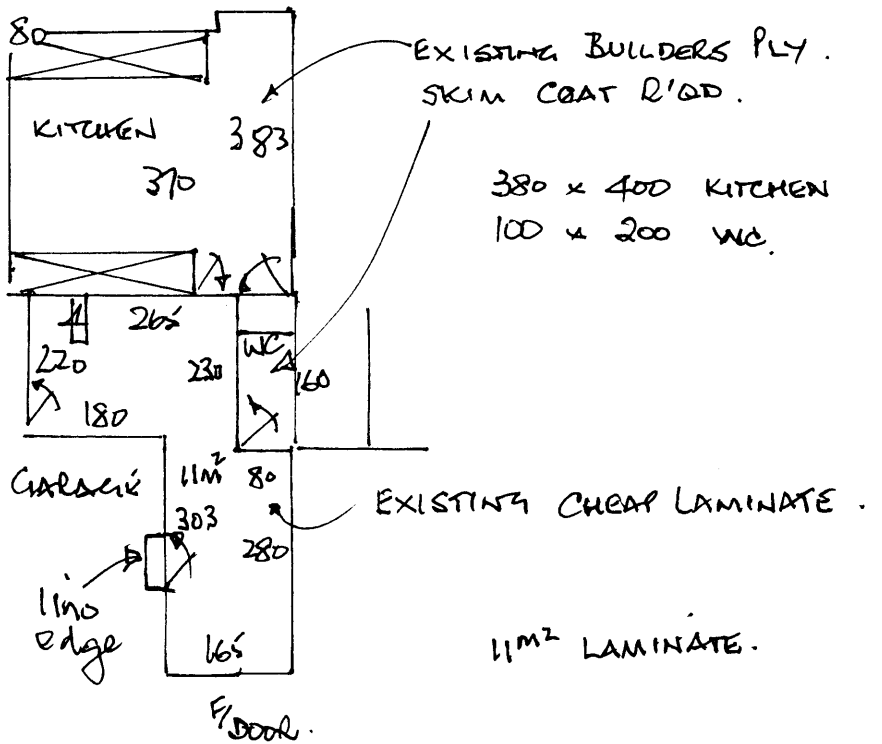 80
EXISTING BUILDERS PLY.
SKIM COAT R'QD.
KITCHEN
383
370
380 x 400 KITCHEN
100 x 200 WC.
265
WC
220
230
160
180
GARAGE
11m²
80
EXISTING CHEAP LAMINATE.
303
280
lino
edge
165
11m² LAMINATE.
F/DOOR.